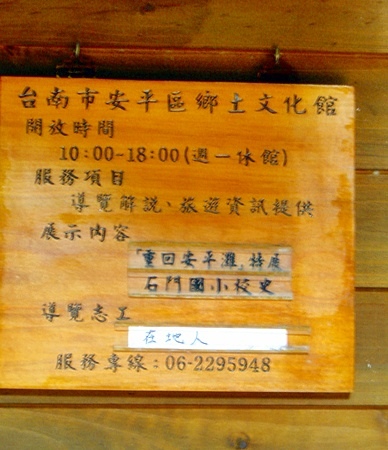 台南市安平區鄉土文化館
開放時間
10:00-18:00(週一休館)
服務項目
導覽解說、旅遊資訊提供
展示內容
「重回安平灘」特展
石門國小校史
導覽志工
在地人
服務專線:06-2295948